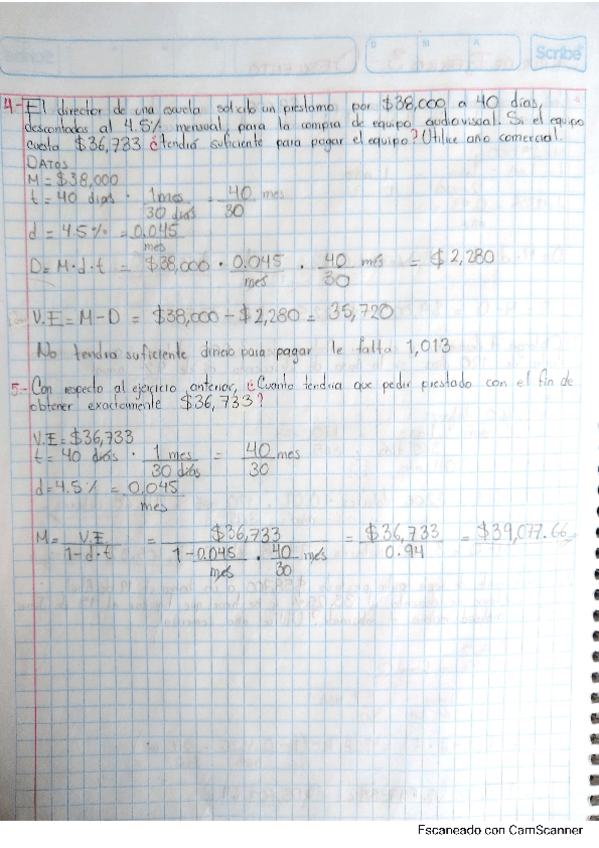 D M A Scribe
4.- El director de una escuela solicito un préstamo por $38,000 a 40 días,
descontados al 4.5% mensual, para la compra de equipo audiovisual. Si el equipo
cuesta $36,733 ¿tendrá suficiente para pagar el equipo? Utilice año comercial.
DATOS
M = $38,000
t = 40 dias · 1 mes / 30 dias = 40 / 30 mes
d = 4.5% = 0.045 / mes
D = M·d·t = $38,000 · 0.045 / mes · 40 / 30 mes = $2,280
V.E = M - D = $38,000 - $2,280 = 35,720
No tendra suficiente dinero para pagar le falta 1,013
5.- Con respecto al ejercicio anterior, ¿Cuanto tendria que pedir prestado con el fin de
obtener exactamente $36,733?
V.E = $36,733
t = 40 dias · 1 mes / 30 dias = 40 / 30 mes
d = 4.5% = 0.045 / mes
M = V.E / 1-d·t = $36,733 / 1-0.045 / mes · 40 / 30 mes = $36,733 / 0.94 = $39,077.66
Escaneado con CamScanner